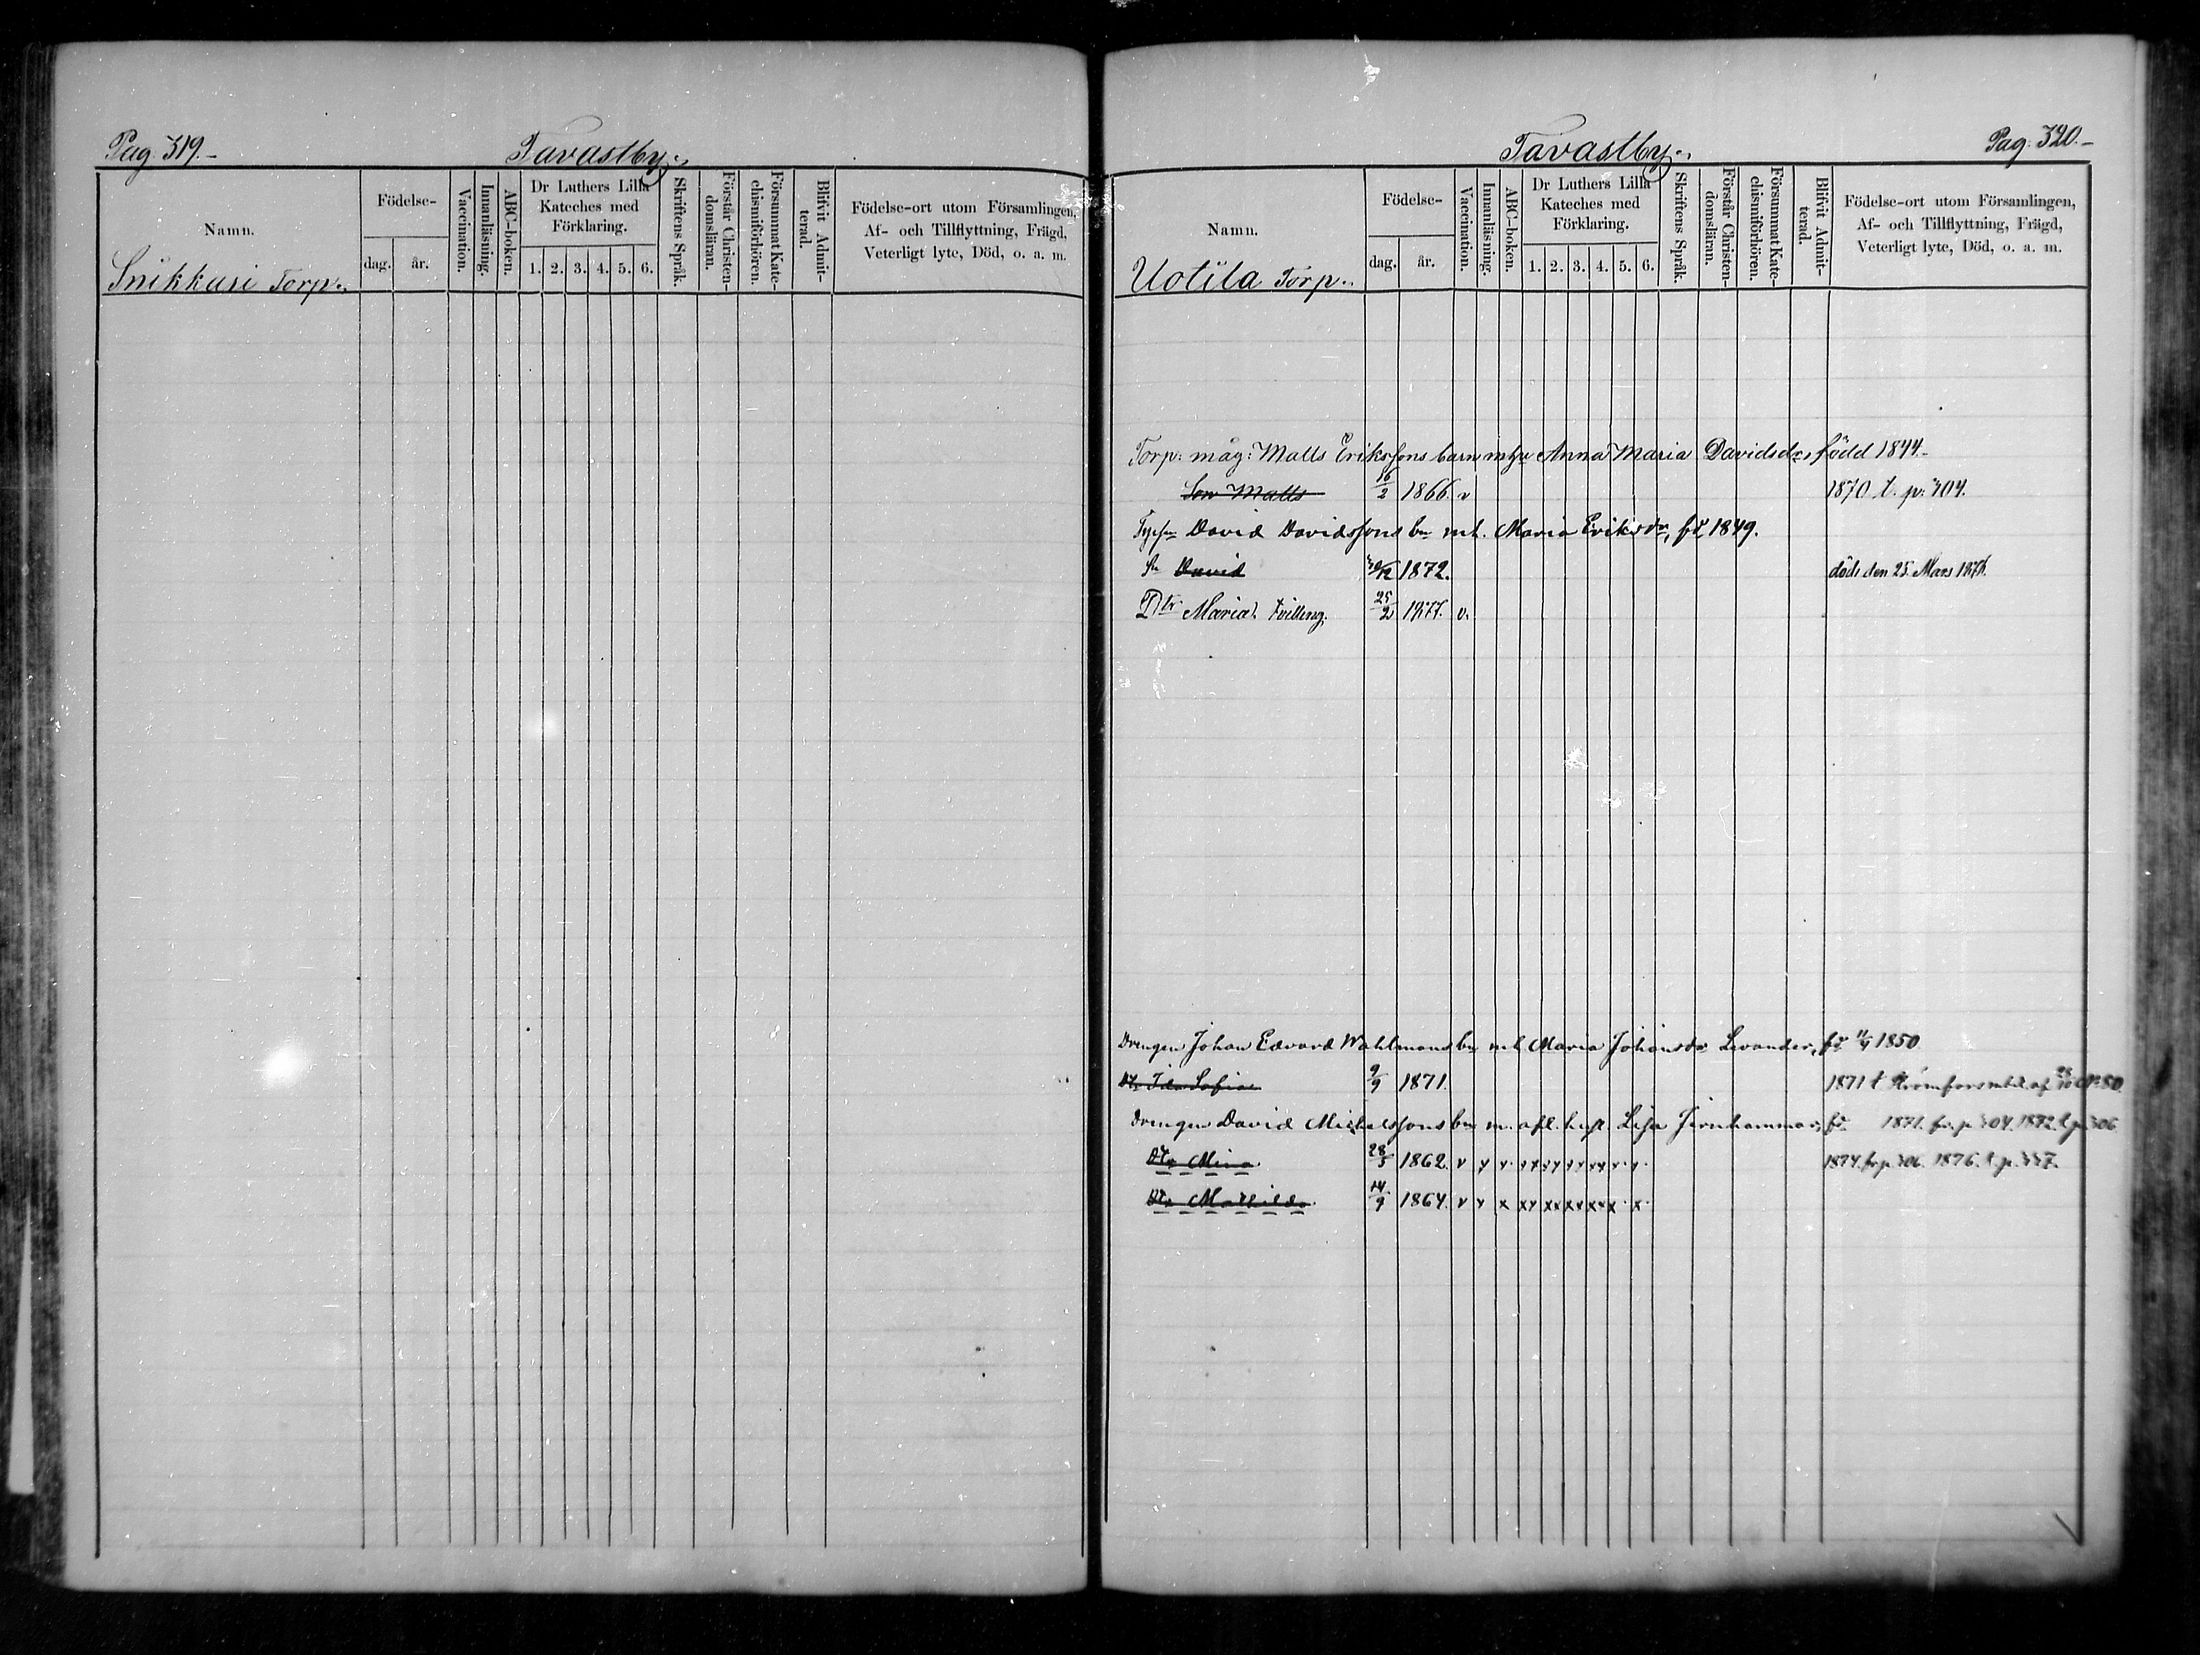 Pag. 319.-
Tavastby.
Namn.
Födelse-
dag. år.
Vaccination.
Innanläsning.
ABC-boken.
Dr Luthers Lilla
Kateches med
Förklaring.
1. 2. 3. 4. 5. 6.
Skriftens Språk.
Förstår Christen-
domsläran.
Försummat Kate-
chismiförhören.
Blifvit Admit-
terad.
Födelse-ort utom Församlingen,
Af- och Tillflyttning, Frägd,
Veterligt lyte, Död, o. a. m.
Snikkari Torp.
Tavastby.
Pag. 320.-
Namn.
Födelse-
dag. år.
Vaccination.
Innanläsning.
ABC-boken.
Dr Luthers Lilla
Kateches med
Förklaring.
1. 2. 3. 4. 5. 6.
Skriftens Språk.
Förstår Christen-
domsläran.
Försummat Kate-
chismiförhören.
Blifvit Admit-
terad.
Födelse-ort utom Församlingen,
Af- och Tillflyttning, Frägd,
Veterligt lyte, Död, o. a. m.
Uotila Torp.
Torp: måg: Matts Erikssons barn m hu Anna Maria Davidsdr, född 1844.-
Son Matts 16/2 1866. v 1870 t. p. 304.
David Davidssons bn mh. Maria Eriksdr, fd 1849.
Sn David 30/12 1872. död den 25 Mars 1878.
Dtr Maria. tvilling. 25/2 1877. v.
Drengen Johan Edvard Wahlmans bn mh Maria Johansdr Levander, fd 11/4 1850
Dtr Ida Sofia 9/9 1871. 1871 t Strömfors
drengen David Michelssons bn m. afl. hust. Lisa Jernhammar, fd 1871. fr. p 304. 1872. t. p. 306
Dtr Mina 28/5 1862. v 1874. fr. p 306. 1876. t. p. 337.
Dtr Mathilda 14/9 1864. v